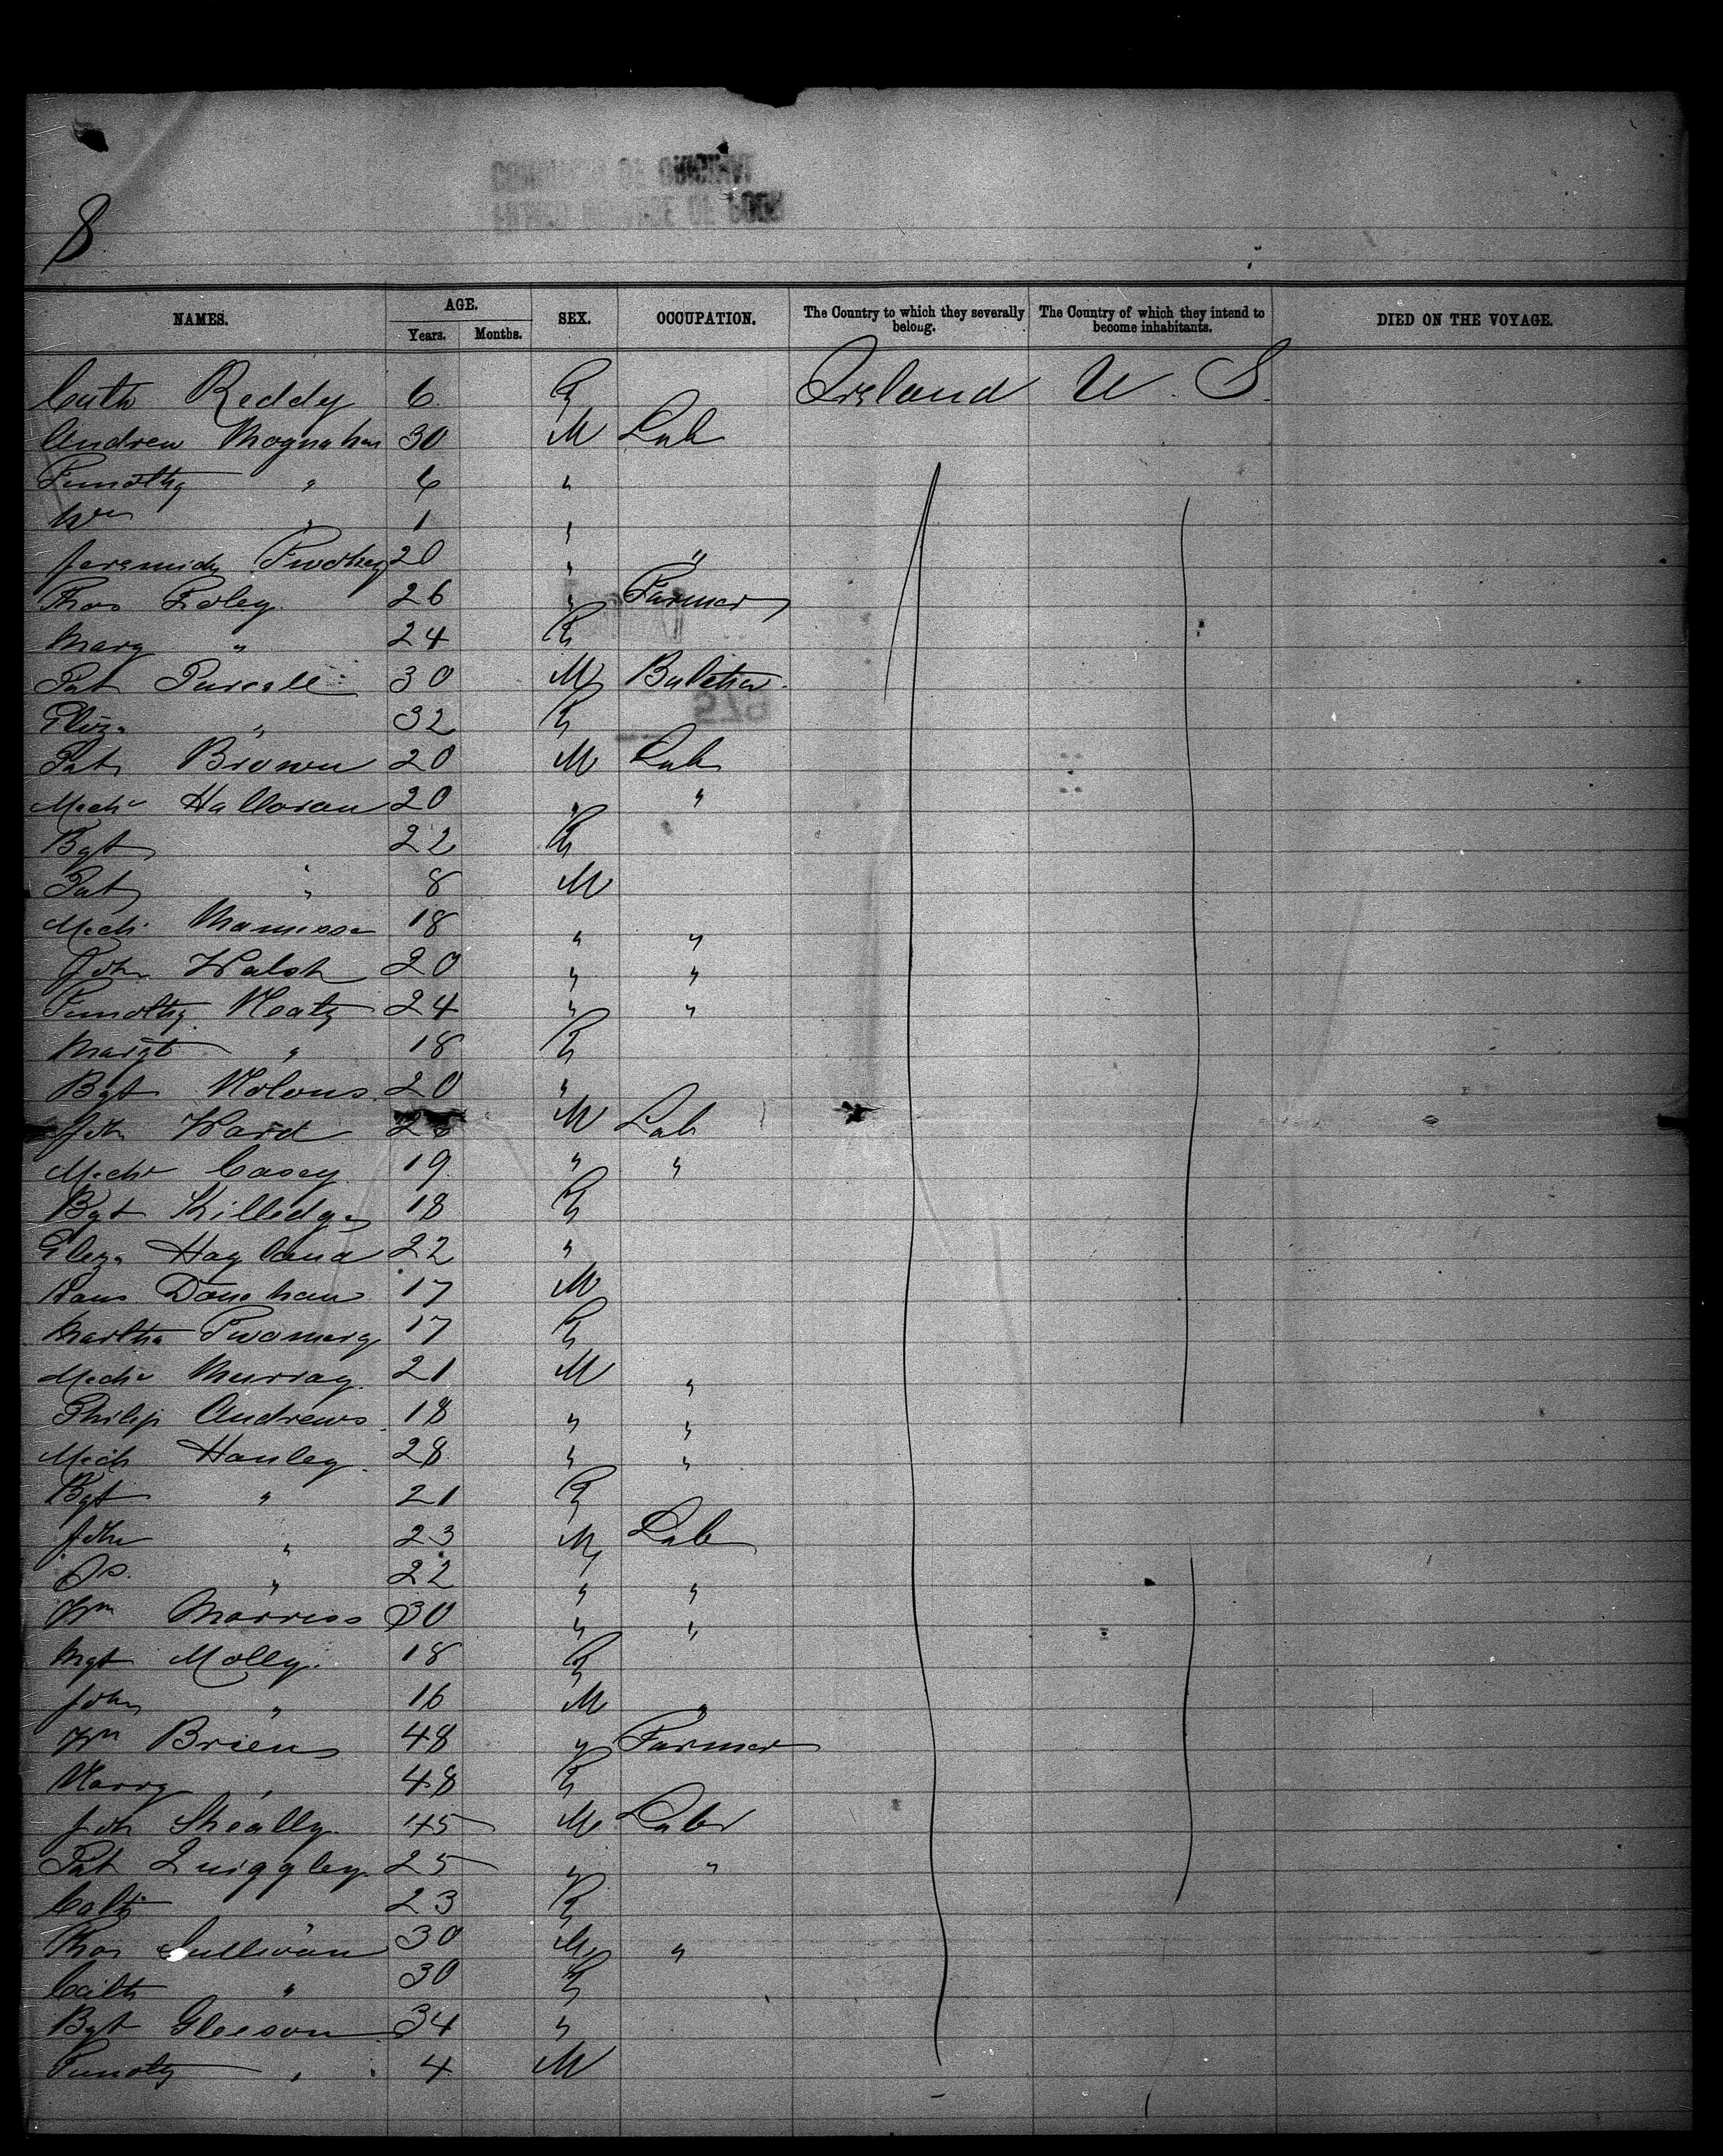 8
NAMES. AGE. SEX. OCCUPATION. The Country to which they severally belong. The Country of which they intend to become inhabitants. DIED ON THE VOYAGE.
Years. Months.
Cath Reddy 6 F Ireland U. S.
Andrew 30 M Lab
Timothy " 6 "
Wm " 1 "
Jeremiah 20 " "
Thos Foley 26 " Farmer
Mary " 24 F
Pat Purcell 30 M
Eliza " 32 F
Pat Brown 20 M Lab
Mich Halloran 20 " "
Bgt 22 F
Pat " 8 M
Mich 18 " "
John Walsh 20 " "
Timothy 24 " "
Margt " 18 F
Bgt 20 "
John Ward M Lab
Mich Casey 19 " "
Bgt 18 F
Eliza 22 "
17 M
Martha Twomey 17 F
Mich Murray 21 M "
Philip Andrews 18 " "
Mich Hanley 28 " "
Bgt " 21 F
John " 23 M Lab
" 22 " "
Wm Morriss 30 " "
Mgt Molly 18 F
John " 16 M "
Wm Brien 48 " Farmer
" 48 F
John Sheally 45 M Lab
Pat Quiggley 25 " "
Cath " 23 F
Thos Sullivan 30 M "
Cath " 30 F
Bgt Gleeson 34 "
Timoty " 4 M